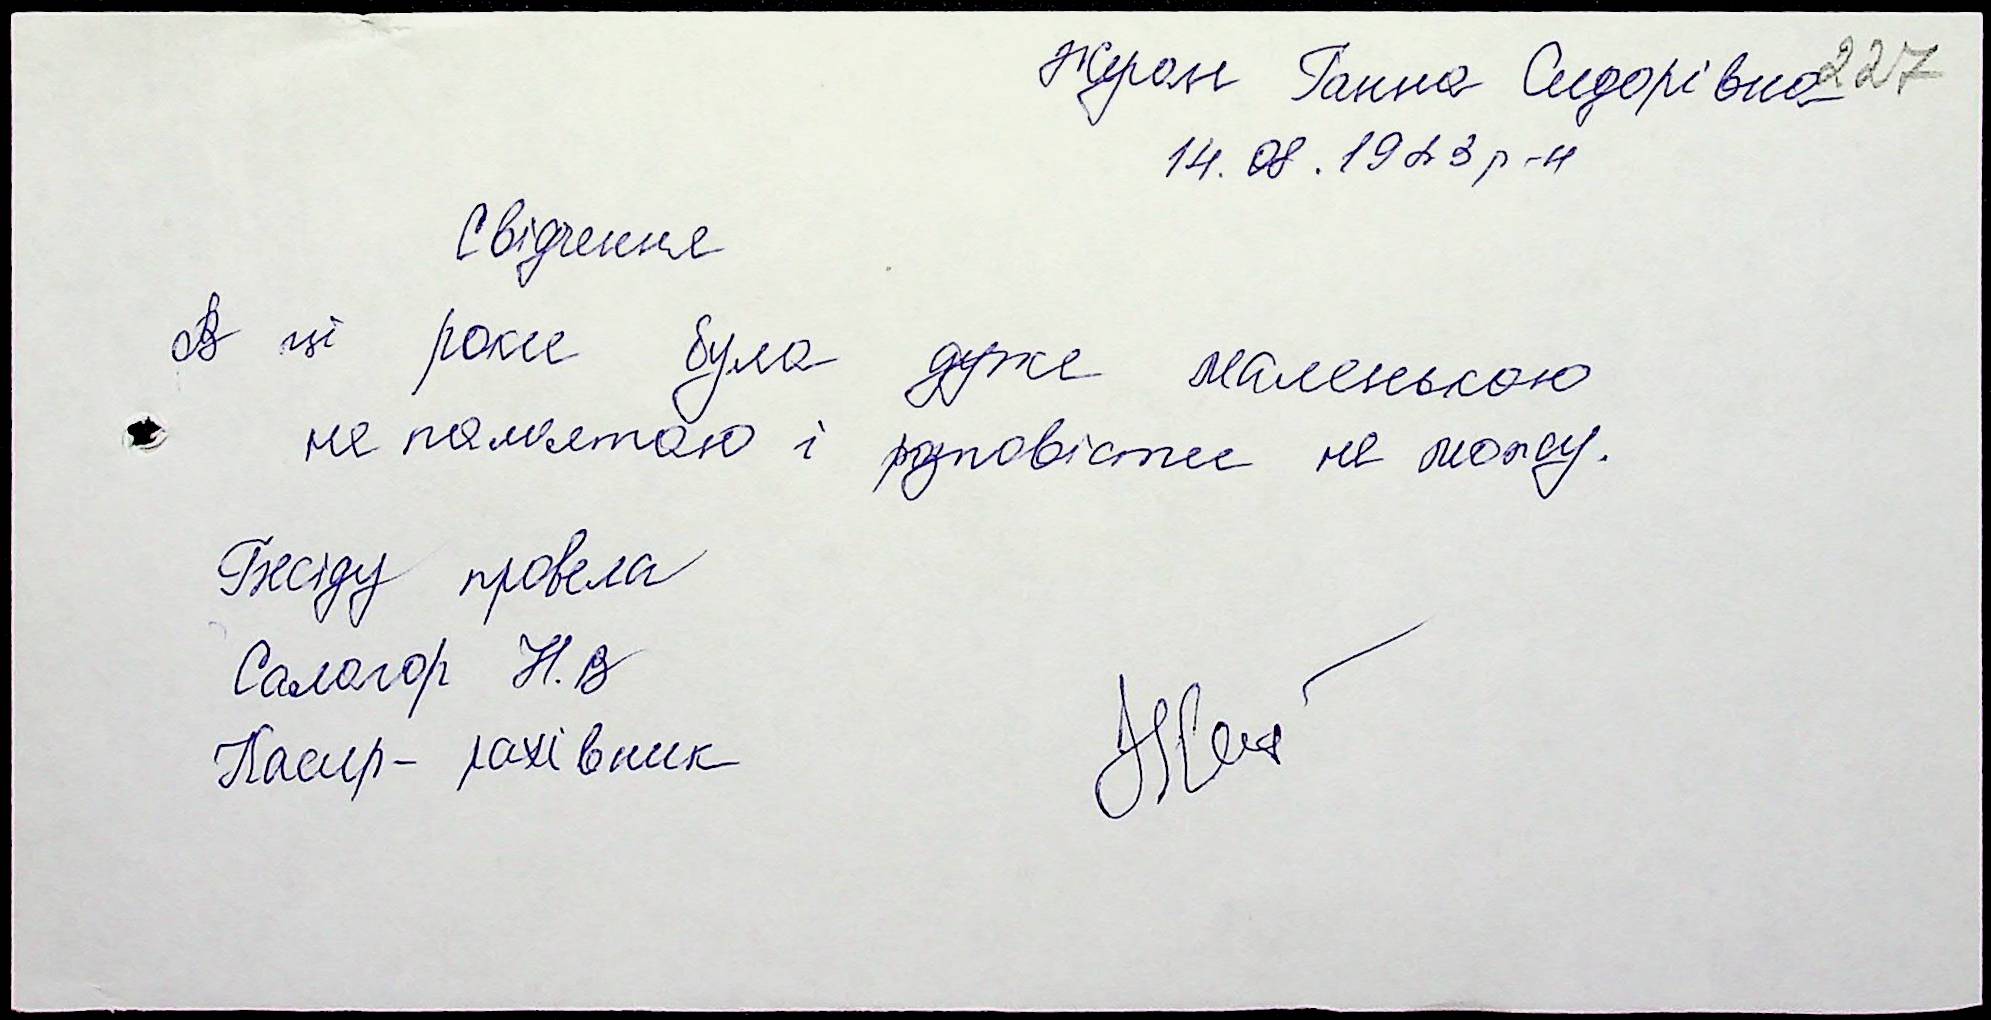 Ганна Сидорівна 227
14.08.1923 р-н
Свідчення
В ці роки була дуже маленькою
не памятаю і розповісти не можу.
Бесіду провела
Салогор Н.В
Касир- рахівник